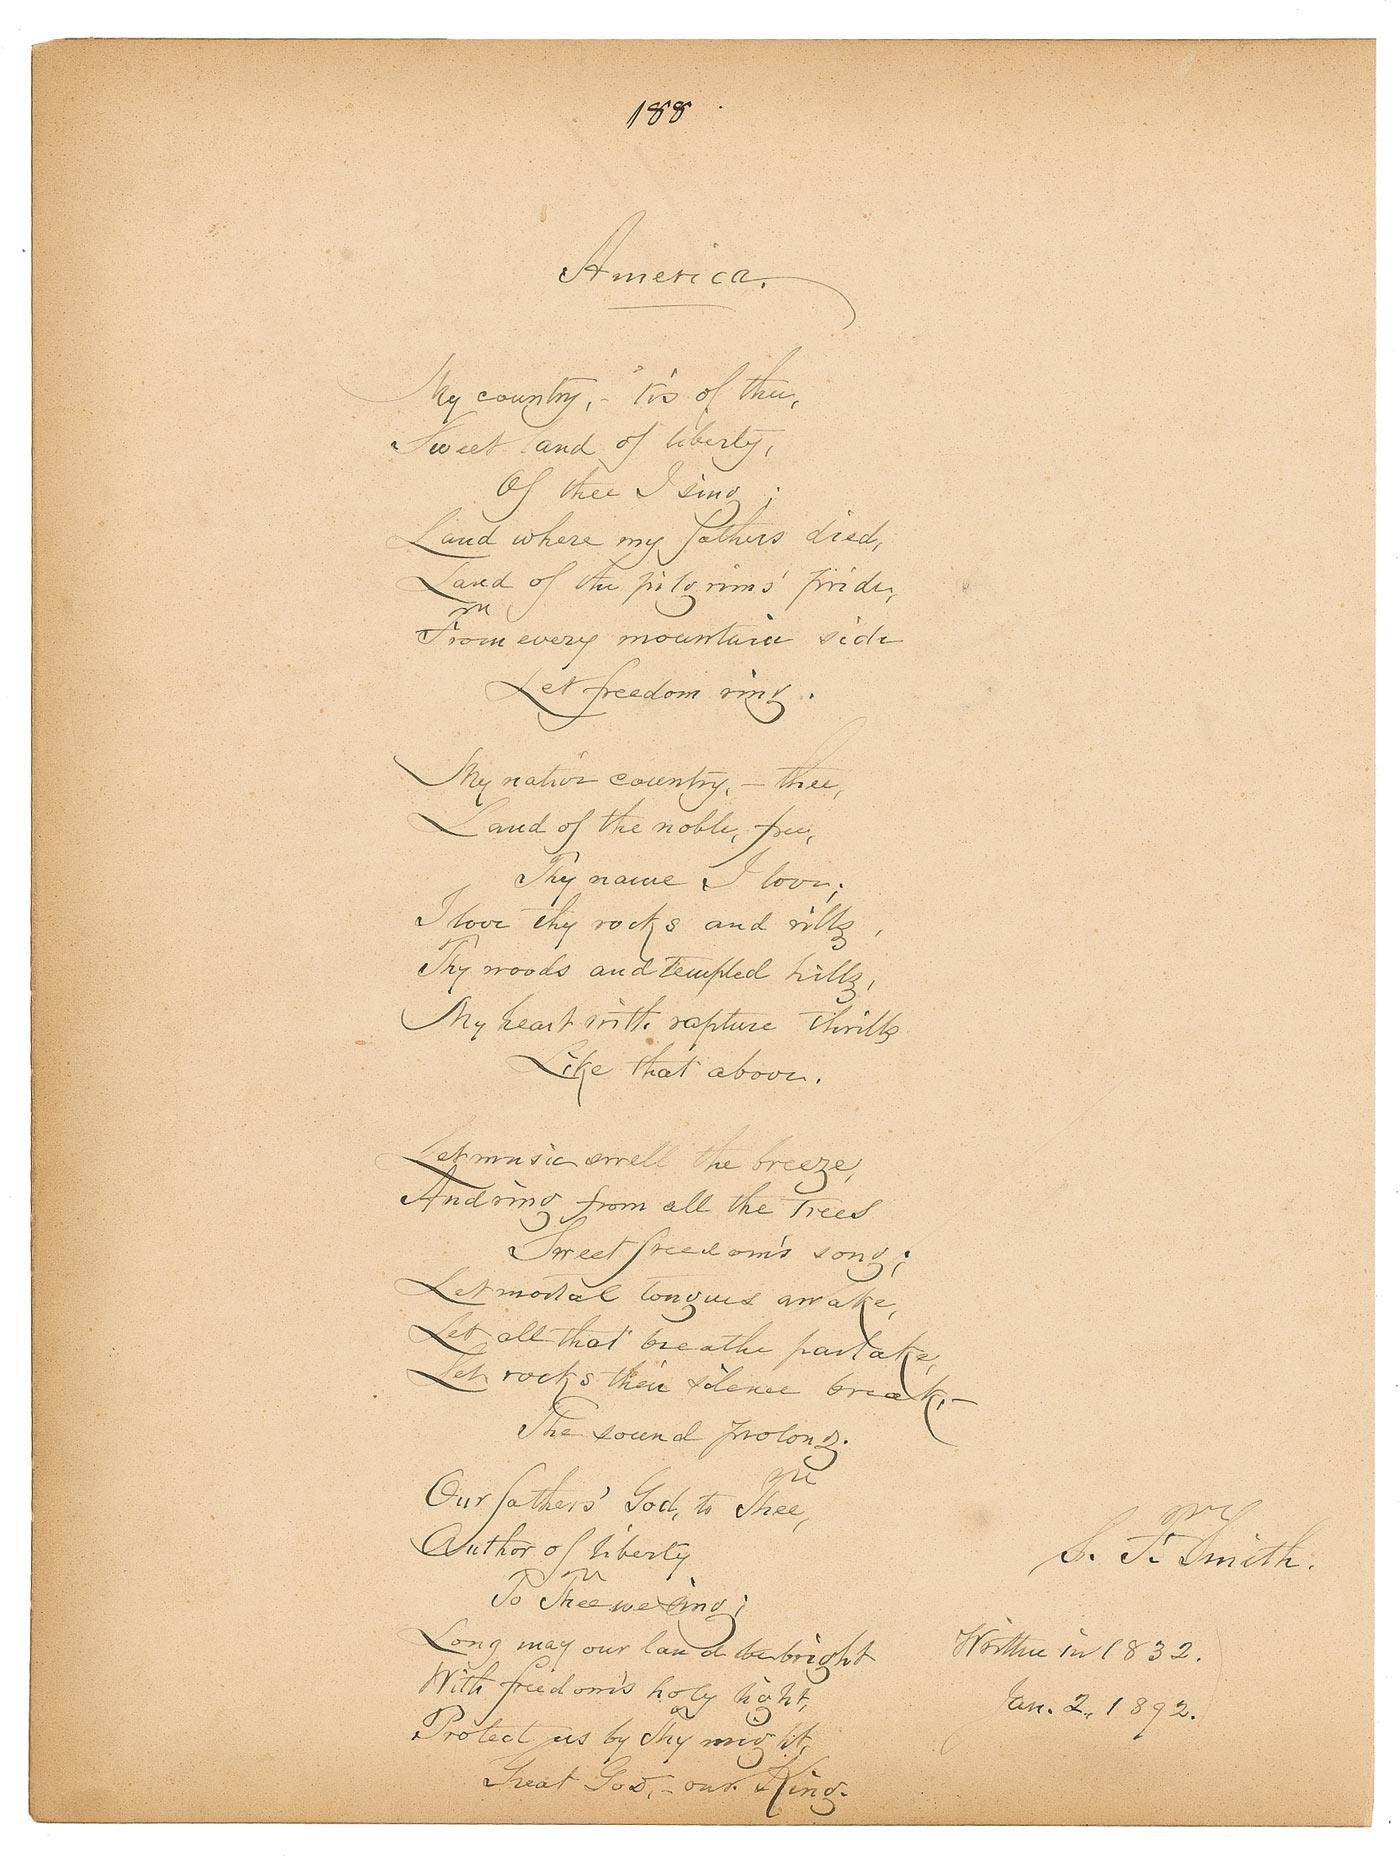 188
America.
My country, - 'tis of thee,
Sweet land of liberty,
Of thee I sing;
Land where my fathers died,
Land of the pilgrims' pride,
From every mountain side
Let freedom ring.
My native country, - thee,
Land of the noble, free,
Thy name I love;
I love thy rocks and rills,
Thy woods and templed hills,
My heart with rapture thrills
Like that above.
Let music swell the breeze,
And ring from all the trees
Sweet freedom's song;
Let mortal tongues awake,
Let all that breathe partake,
Let rocks their silence break, -
The sound prolong.
Our fathers' God, to Thee,
Author of liberty
To Thee we sing;
Long may our land be bright
With freedom's holy light,
Protect us by Thy might,
Great God, - our King.
S. F. Smith.
Written in 1832.
Jan. 2, 1892.